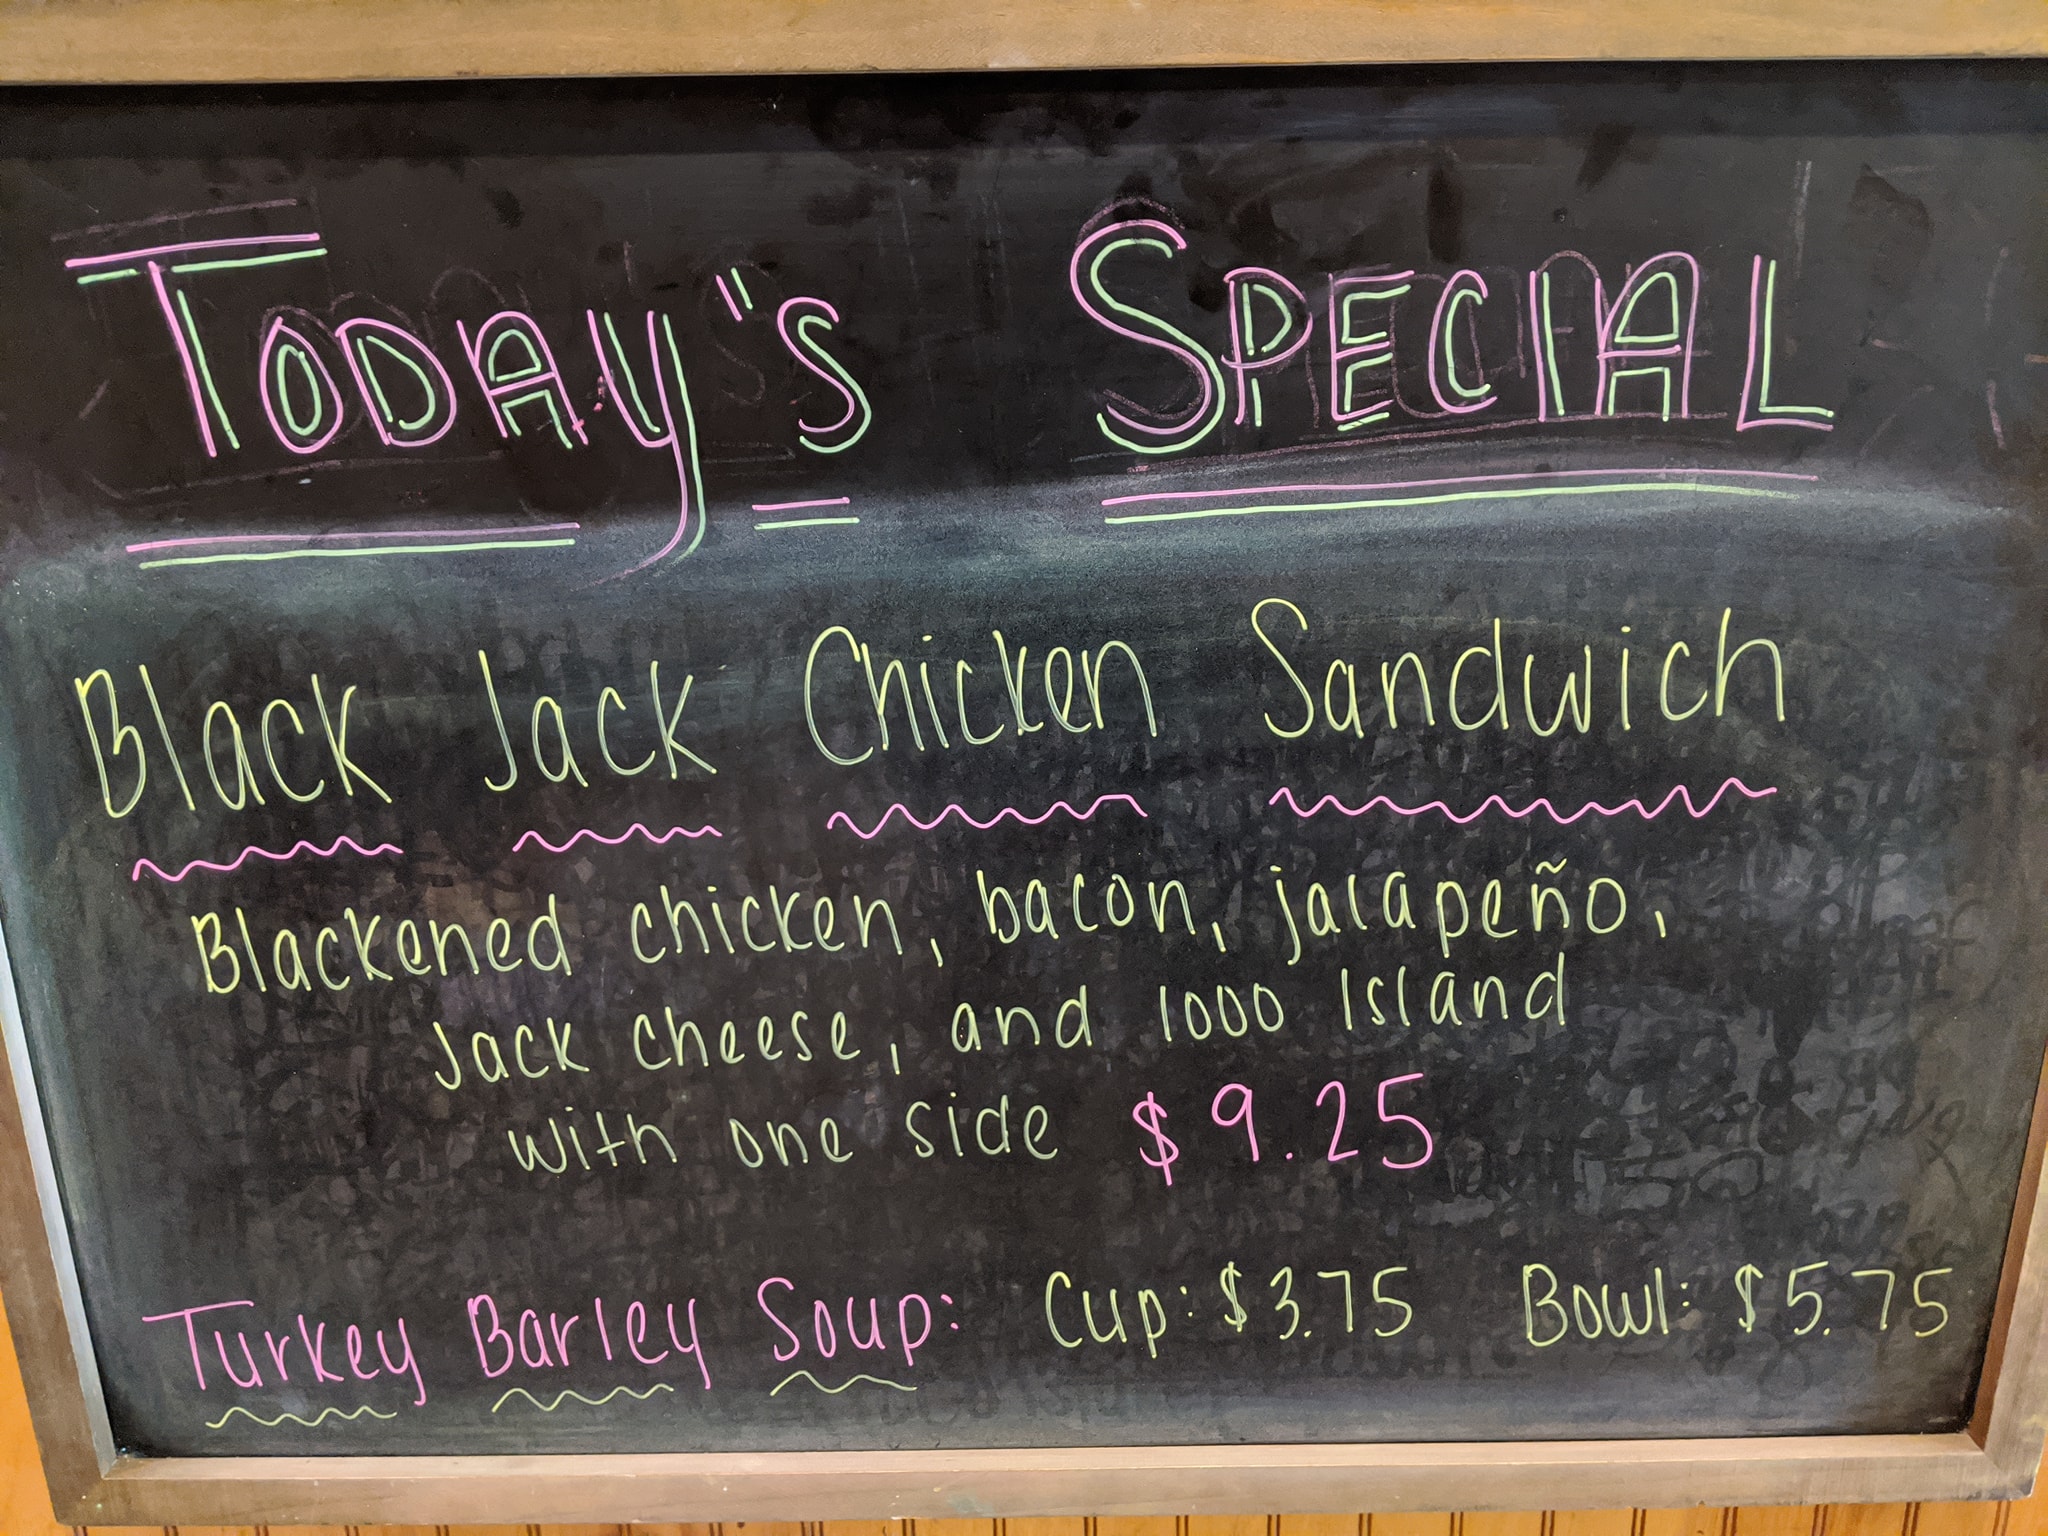 Today's Special
Black Jack Chicken Sandwich
Blackened chicken, bacon, jalapeño,
Jack cheese, and 1000 Island
with one side $9.25
Turkey Barley Soup: Cup: $3.75 Bowl: $5.75